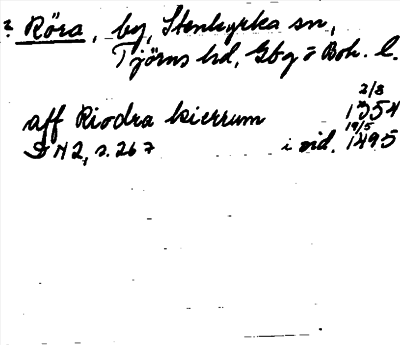 ? Röra, by, Stenkyrka sn,
Tjörns hd, Gbg o Boh. l.
2/3
aff Riodra kierrum 1354
19/5
DN 2, s. 267 i vid. 1495